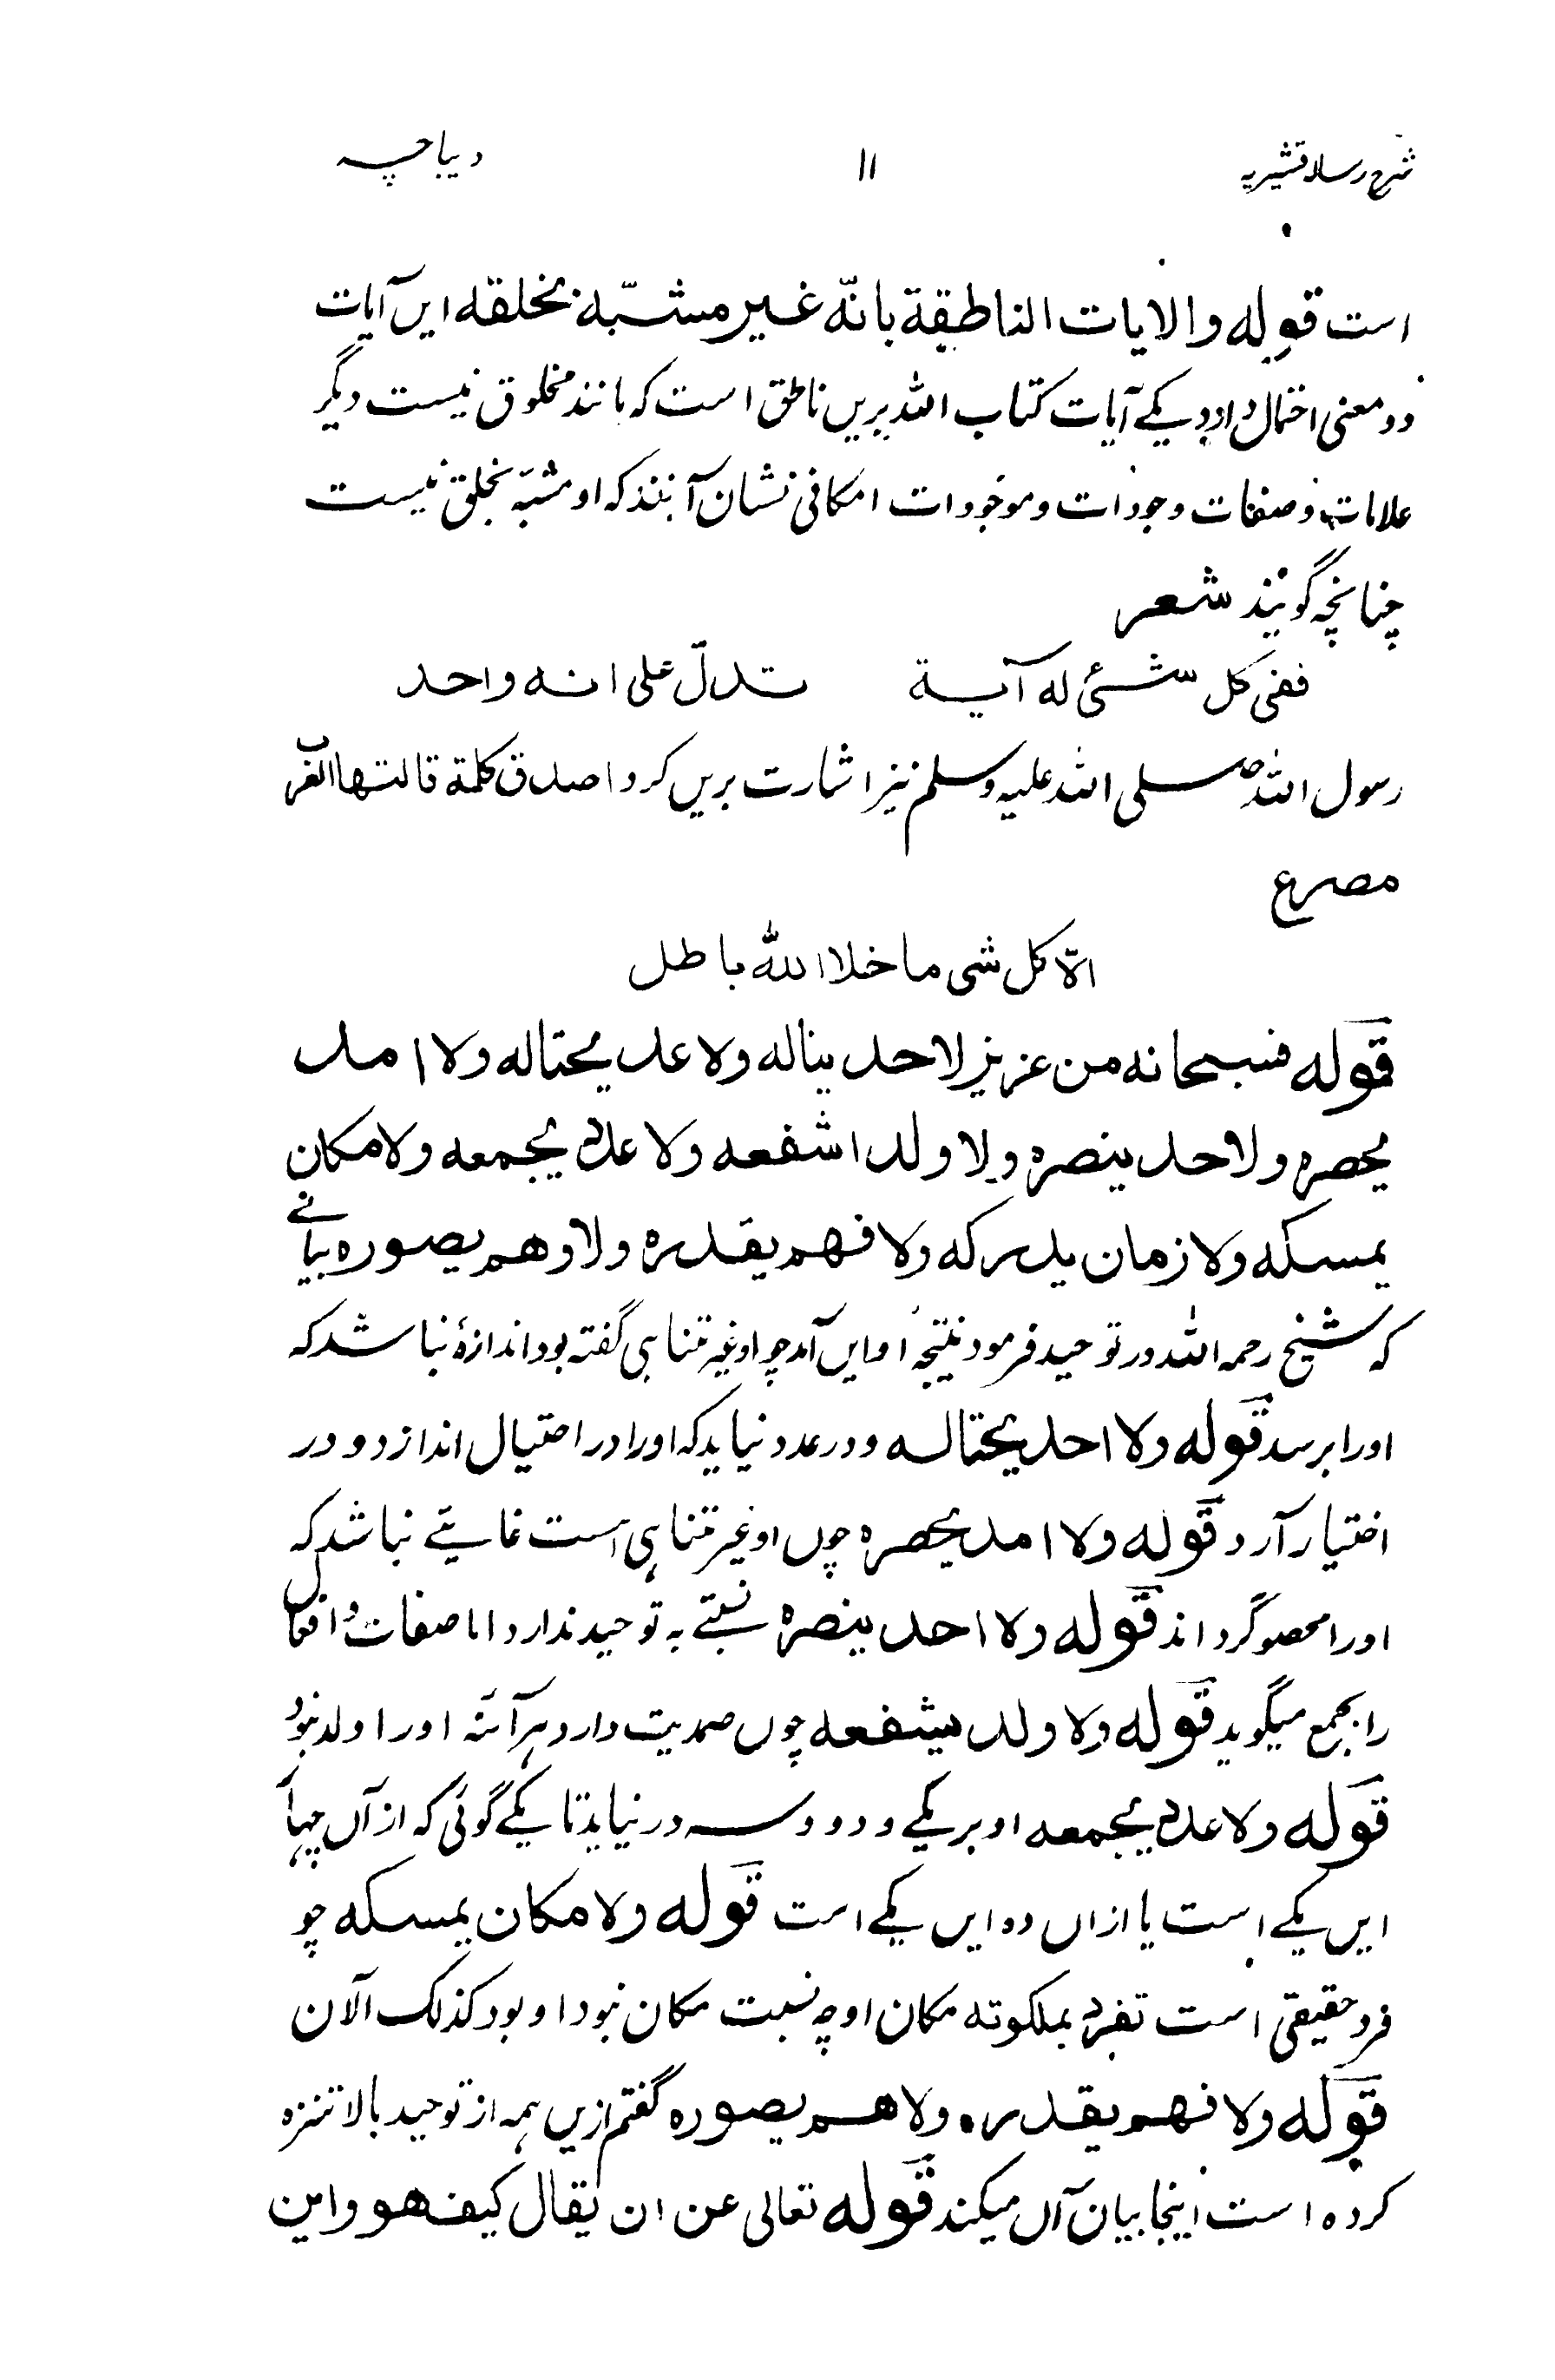 شرح رساله قشیریه ۱۱ دیباچه
است قوله والایات الناطقة بانّه غیر مشبّه بخلقه ایں آیات
دو معنی احتمال دارد یکے آیات کتاب الله بریں ناطق است که مانند مخلوق نیست دیگر
علامات وصفات وجودات وموجودات امکانی نشان آنند که او مشبّه بخلق نیست
چنانچه گویند شعر
ففی کل شئ له آیة تدلّ علی انه واحد
رسول الله صلی الله علیه وسلم نیز اشارت بریں کرد اصدق کلمة قالتها العرب
مصرع
الّا کل شی ما خلا الله باطل
قوله فسبحانه من عزیز لاحد یناله ولا عد یحتاله ولا امد
یحصره ولا حد ینصره ولا ولد اشفعه ولا عدد یجمعه ولا مکان
یمسکه ولا زمان یدرکه ولا فهم یقدره ولا وهم یصوره بیانے
که شیخ رحمه الله در توحید فرمود نتیجۂ او ایں آمد چو او غیر متناہی گفته بود اندازۂ نباشد که
اورا برسد قوله ولا احد یحتاله ودر عدد نیاید که اورا در احتیال اندازد ودر
اختیار آرد قوله ولا امد یحصره چوں او غیر متناہی است غایتے نباشد که
اورا محصو گرداند قوله ولا احد ینصره نسبتے به توحید ندارد اما صفات و افعال
را بجمع میگوید قوله ولا ولد یشفعه چوں صمدیت دارد ہر آئنه اورا ولد نبود
قوله ولا عدد یجمعه او بر یکے و دو و سه در نیاید تا یکے گوئی که از آں چہار
ایں یکے است یا ازاں ده ایں یکے است قوله ولا مکان یمسکه چو
فرد حقیقی است تفرد بملکوته مکان او چه نسبت مکان نبود او بود کذلک الآن
قوله ولا فهم یقدره ولا هم یصوره گفتم ازیں ہمه از توحید بالا تنزه
کرده است اینجا بیان آں میکند قوله تعالی عن ان یقال کیف هو واین